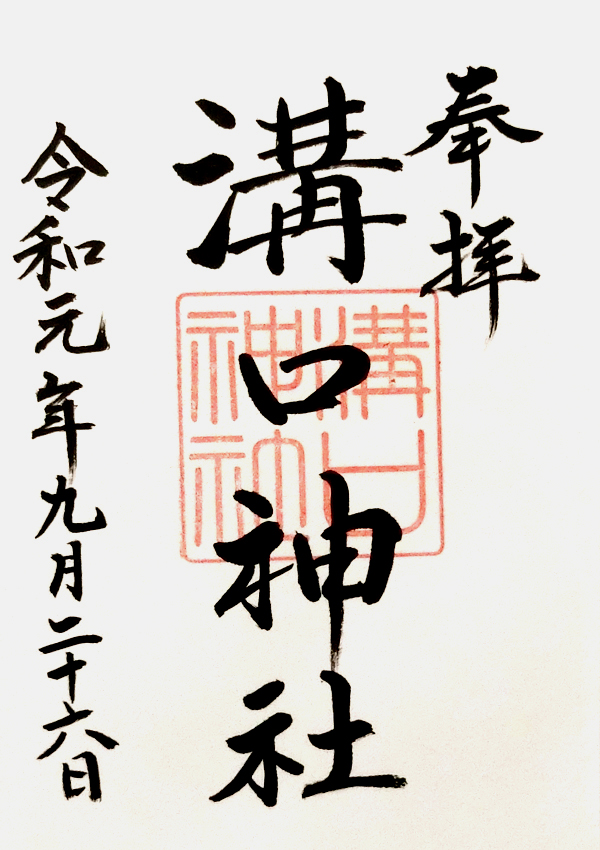 奉拝
溝口神社
溝口神社
令和元年九月二十六日